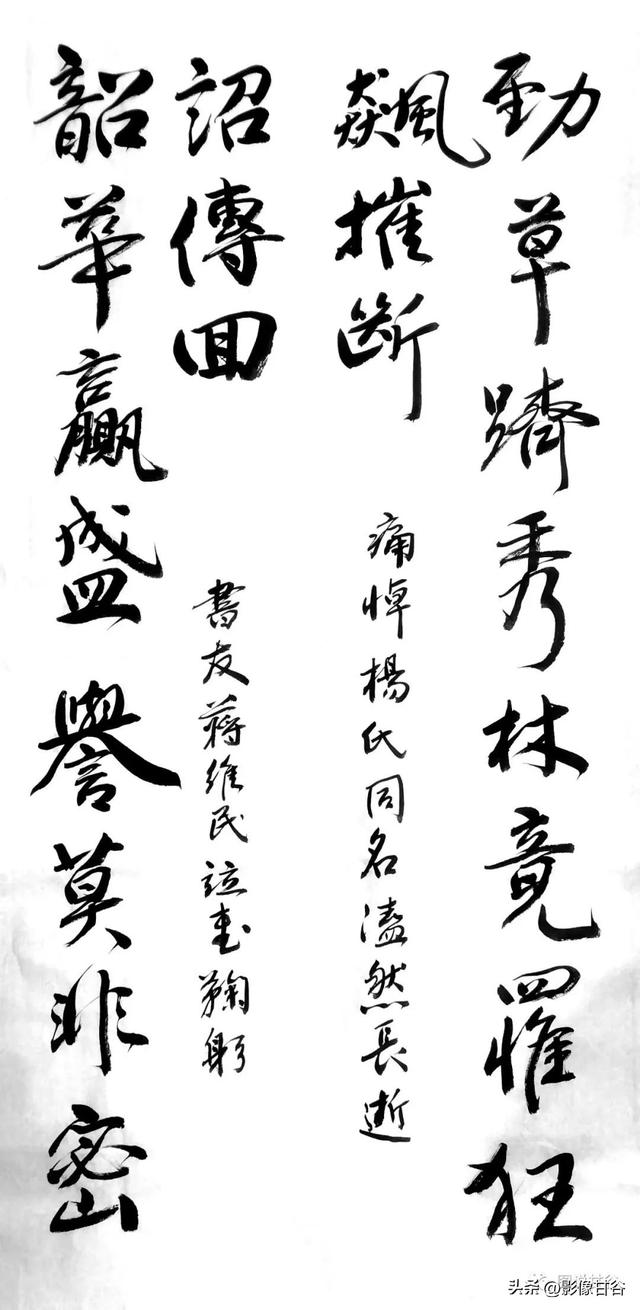 勁草躋秀林竟罹狂
飆摧斷
痛悼楊氏同名溘然長逝
韶華贏盛譽莫非密
詔傳回
書友蔣維民泣書鞠躬
头条 @影像甘谷